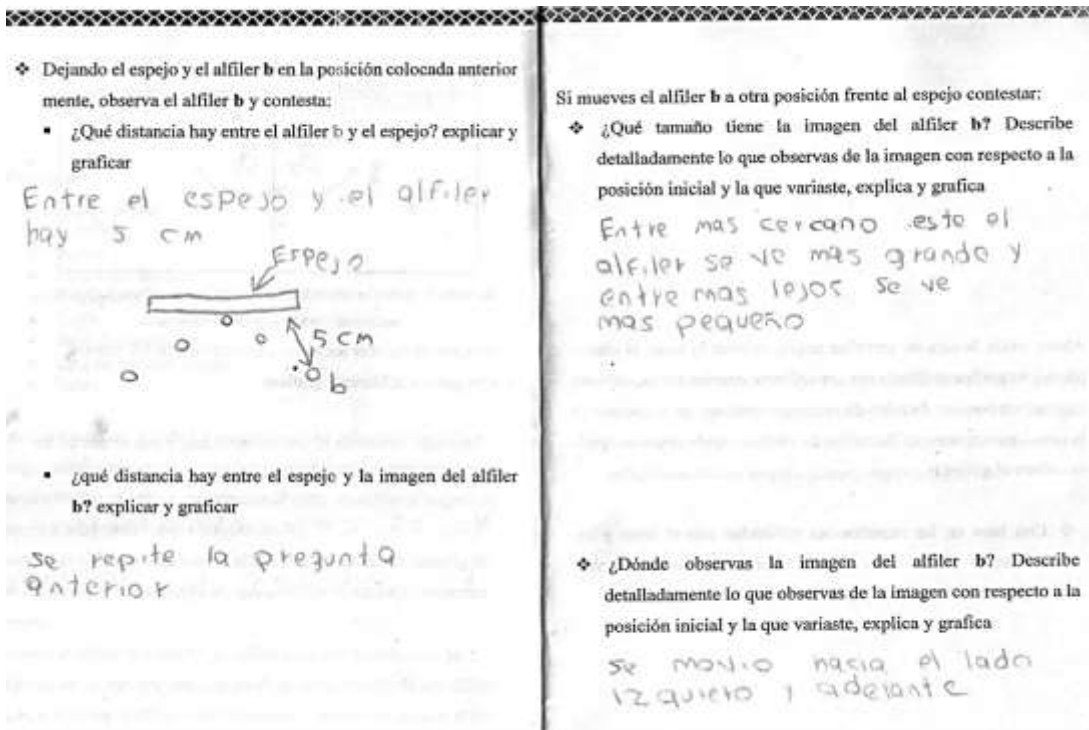 ❖ Dejando el espejo y el alfiler b en la posición colocada anterior
mente, observa el alfiler b y contesta:
▪ ¿Qué distancia hay entre el alfiler b y el espejo? explicar y
graficar
Entre el espejo y el alfiler
hay 5 cm
Espejo
5 cm
b
▪ ¿qué distancia hay entre el espejo y la imagen del alfiler
b? explicar y graficar
se repite la pregunta
anterior
Si mueves el alfiler b a otra posición frente al espejo contestar:
❖ ¿Qué tamaño tiene la imagen del alfiler b? Describe
detalladamente lo que observas de la imagen con respecto a la
posición inicial y la que variaste, explica y grafica
Entre mas cercano este el
alfiler se ve mas grande y
entre mas lejos se ve
mas pequeño
❖ ¿Dónde observas la imagen del alfiler b? Describe
detalladamente lo que observas de la imagen con respecto a la
posición inicial y la que variaste, explica y grafica
se movio hacia el lado
izquiero y adelante